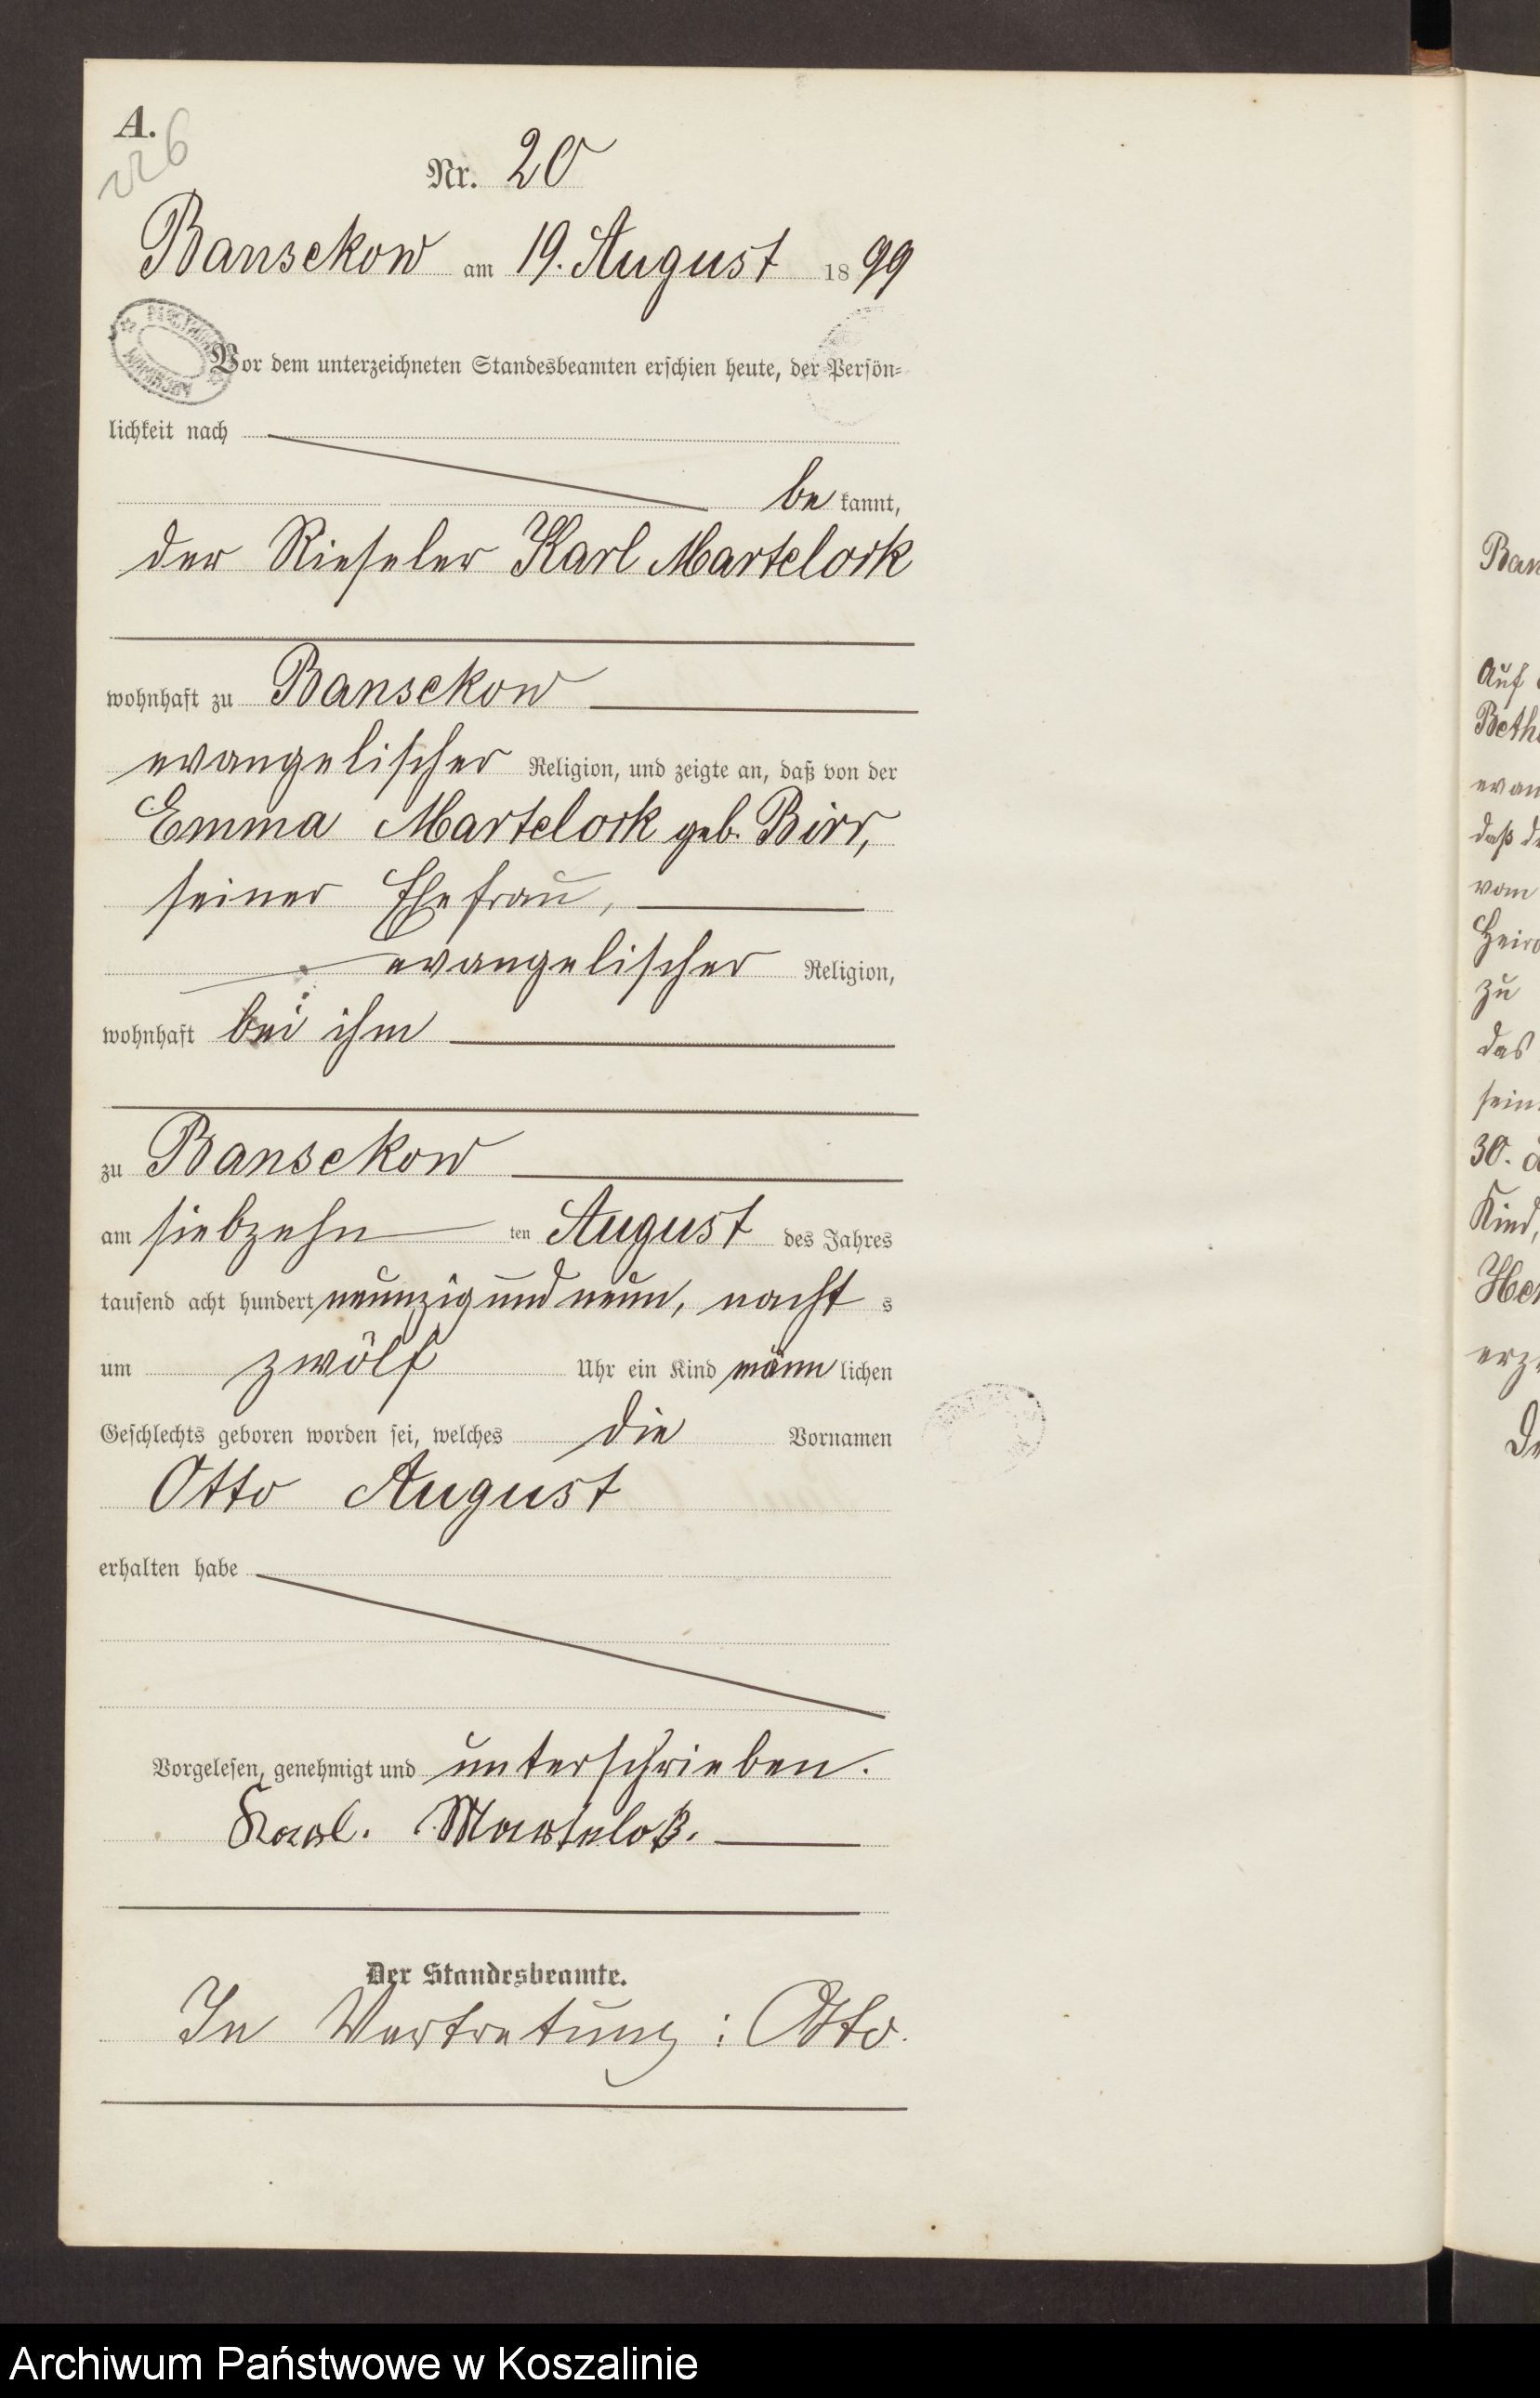 A.
226
Nr. 20
Bansekow am 19. August 1899
Vor dem unterzeichneten Standesbeamten erschien heute, der Persön-
lichkeit nach
be kannt,
der Rieseler Karl Martelock
wohnhaft zu Bansekow
evangelischer Religion, und zeigte an, daß von der
Emma Martelock geb. Birr,
seiner Ehefrau,
evangelischer Religion,
wohnhaft bei ihm
zu Bansekow
am siebzehn ten August des Jahres
tausend acht hundert neunzig und neun, nacht s
um zwölf Uhr ein Kind männ lichen
Geschlechts geboren worden sei, welches die Vornamen
Otto August
erhalten habe
Vorgelesen, genehmigt und unterschrieben.
Karl. Martelok.
Der Standesbeamte.
In Vertretung: Otto.
Ban
Auf
Beth
evan
daß
vom
Heir
zu
das
sein
30.
Kind,
erz
Archiwum Państwowe w Koszalinie